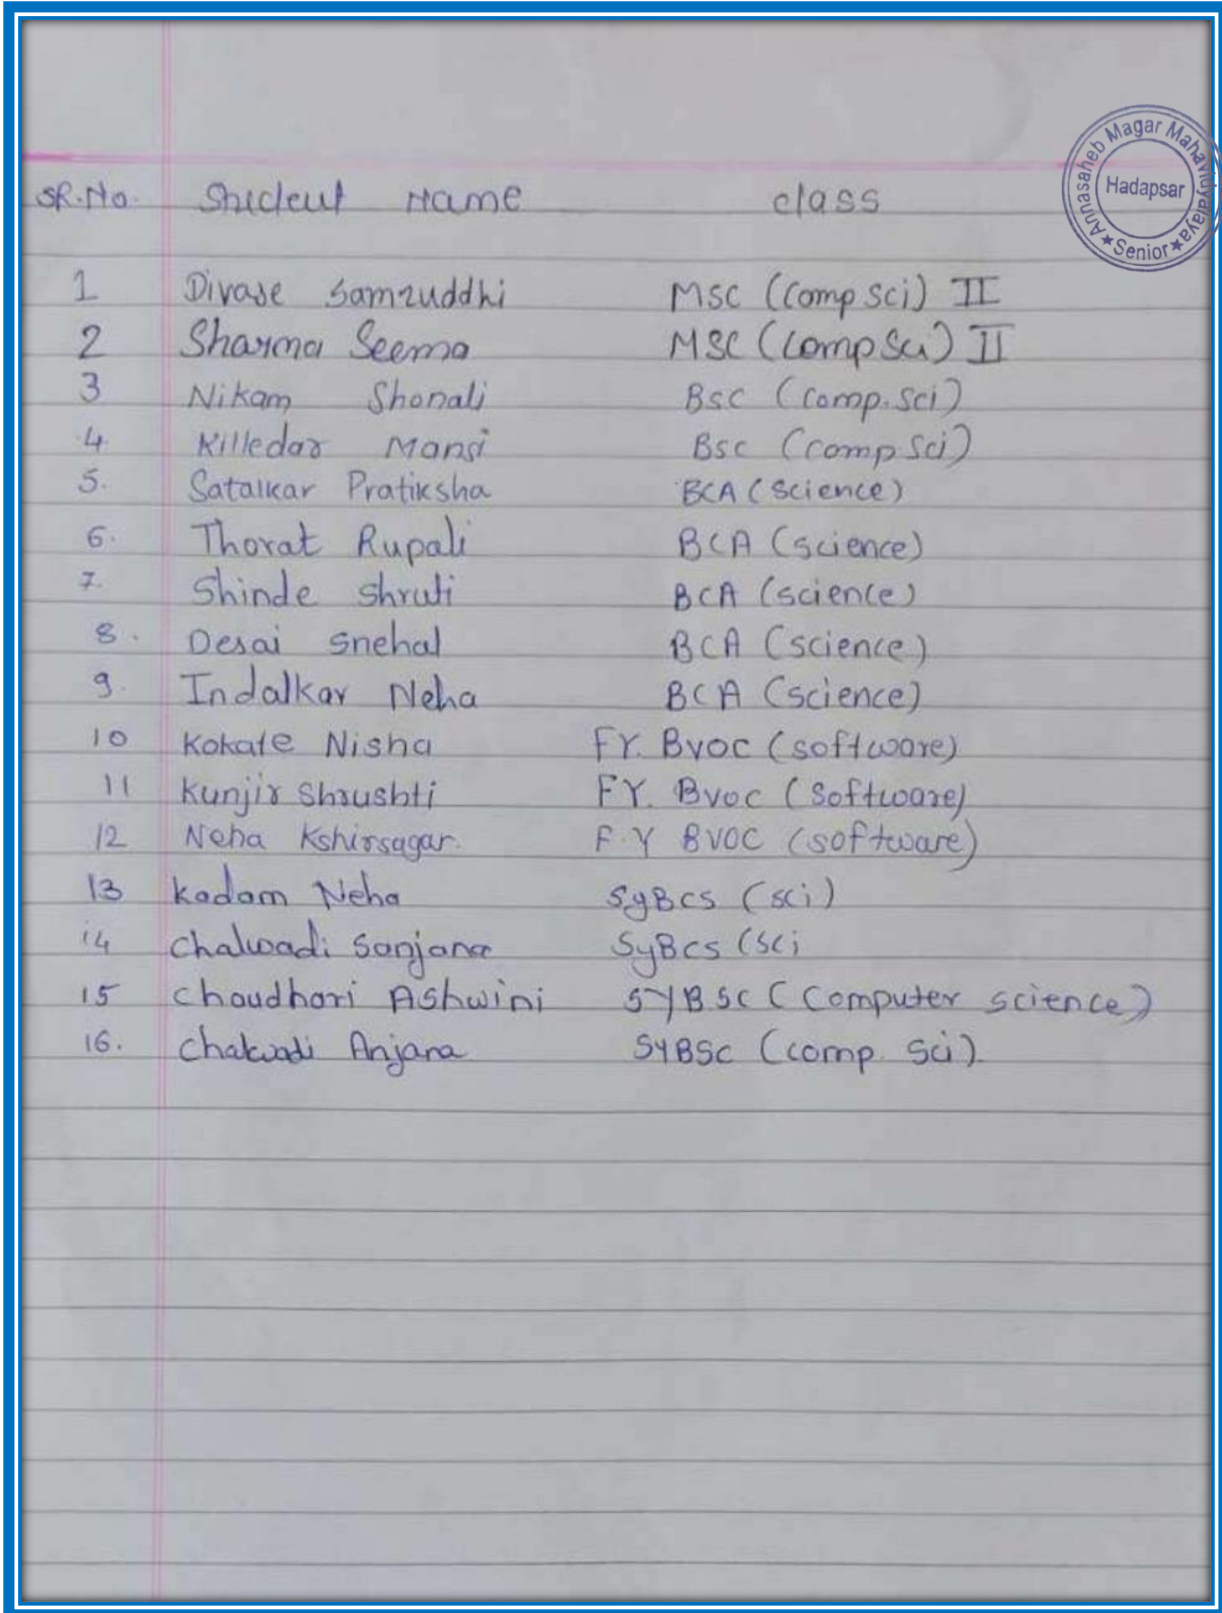 Annasaheb Magar Mahavidyalaya
Hadapsar
★ Senior ★
SR.No. Student Name class
1 Divase Samruddhi MSC (Comp Sci) II
2 Sharma Seema MSC (Comp Sci) II
3 Nikam Shonali BSC (Comp. Sci)
4. Killedar Mansi Bsc (Comp Sci)
5. Satalkar Pratiksha BCA (Science)
6. Thorat Rupali BCA (Science)
7. Shinde Shruti BCA (Science)
8. Desai Snehal BCA (Science)
9. Indalkar Neha BCA (Science)
10 Kokate Nisha FY. Bvoc (software)
11 Kunjir Shrushti FY. Bvoc (Software)
12 Neha Kshirsagar. F.Y BVOC (software)
13 Kadam Neha SyBcs (sci)
14 Chalwadi Sanjana SyBcs (Sci
15 Choudhari Ashwini SYBSC (Computer science)
16. Chalwadi Anjana SYBSC (Comp. Sci).